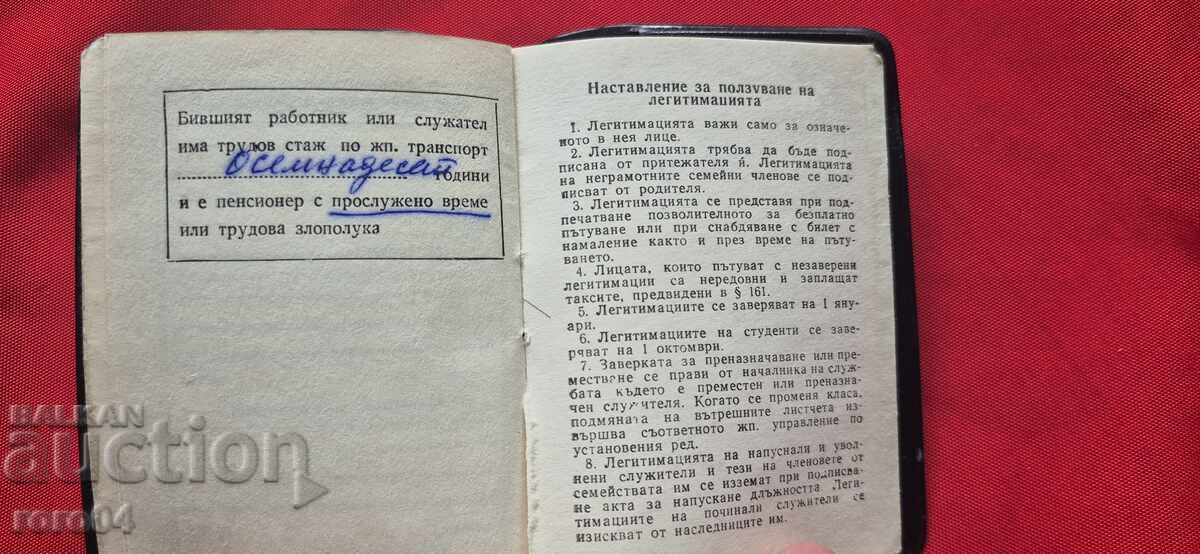 Бившият работник или служател
има трудов стаж по жп. транспорт
Осемнадесет години
и е пенсионер с прослужено време
или трудова злополука
Наставление за ползуване на
легитимацията
1. Легитимацията важи само за означе-
ното в нея лице.
2. Легитимацията трябва да бъде под-
писана от притежателя ѝ. Легитимацията
на неграмотните семейни членове се под-
писват от родителя.
3. Легитимацията се представя при под-
печатване позволителното за безплатно
пътуване или при снабдяване с билет с
намаление както и през време на пъту-
ването.
4. Лицата, които пътуват с незаверени
легитимации са нередовни и заплащат
таксите, предвидени в § 161.
5. Легитимациите се заверяват на 1 яну-
ари.
6. Легитимациите на студенти се заве-
ряват на 1 октомври.
7. Заверката за преназначаване или пре-
местване се прави от началника на служ-
бата където е преместен или преназна-
чен служителя. Когато се променя класа,
подмяната на вътрешните листчета из-
вършва съответното жп. управление по
установения ред.
8. Легитимацията на напуснали и увол-
нени служители и тези на членовете от
семействата им се изземат при подписва-
не акта за напускане длъжността. Леги-
тимациите на починали служители се
изискват от наследниците им.
BALKAN
auction
roro04